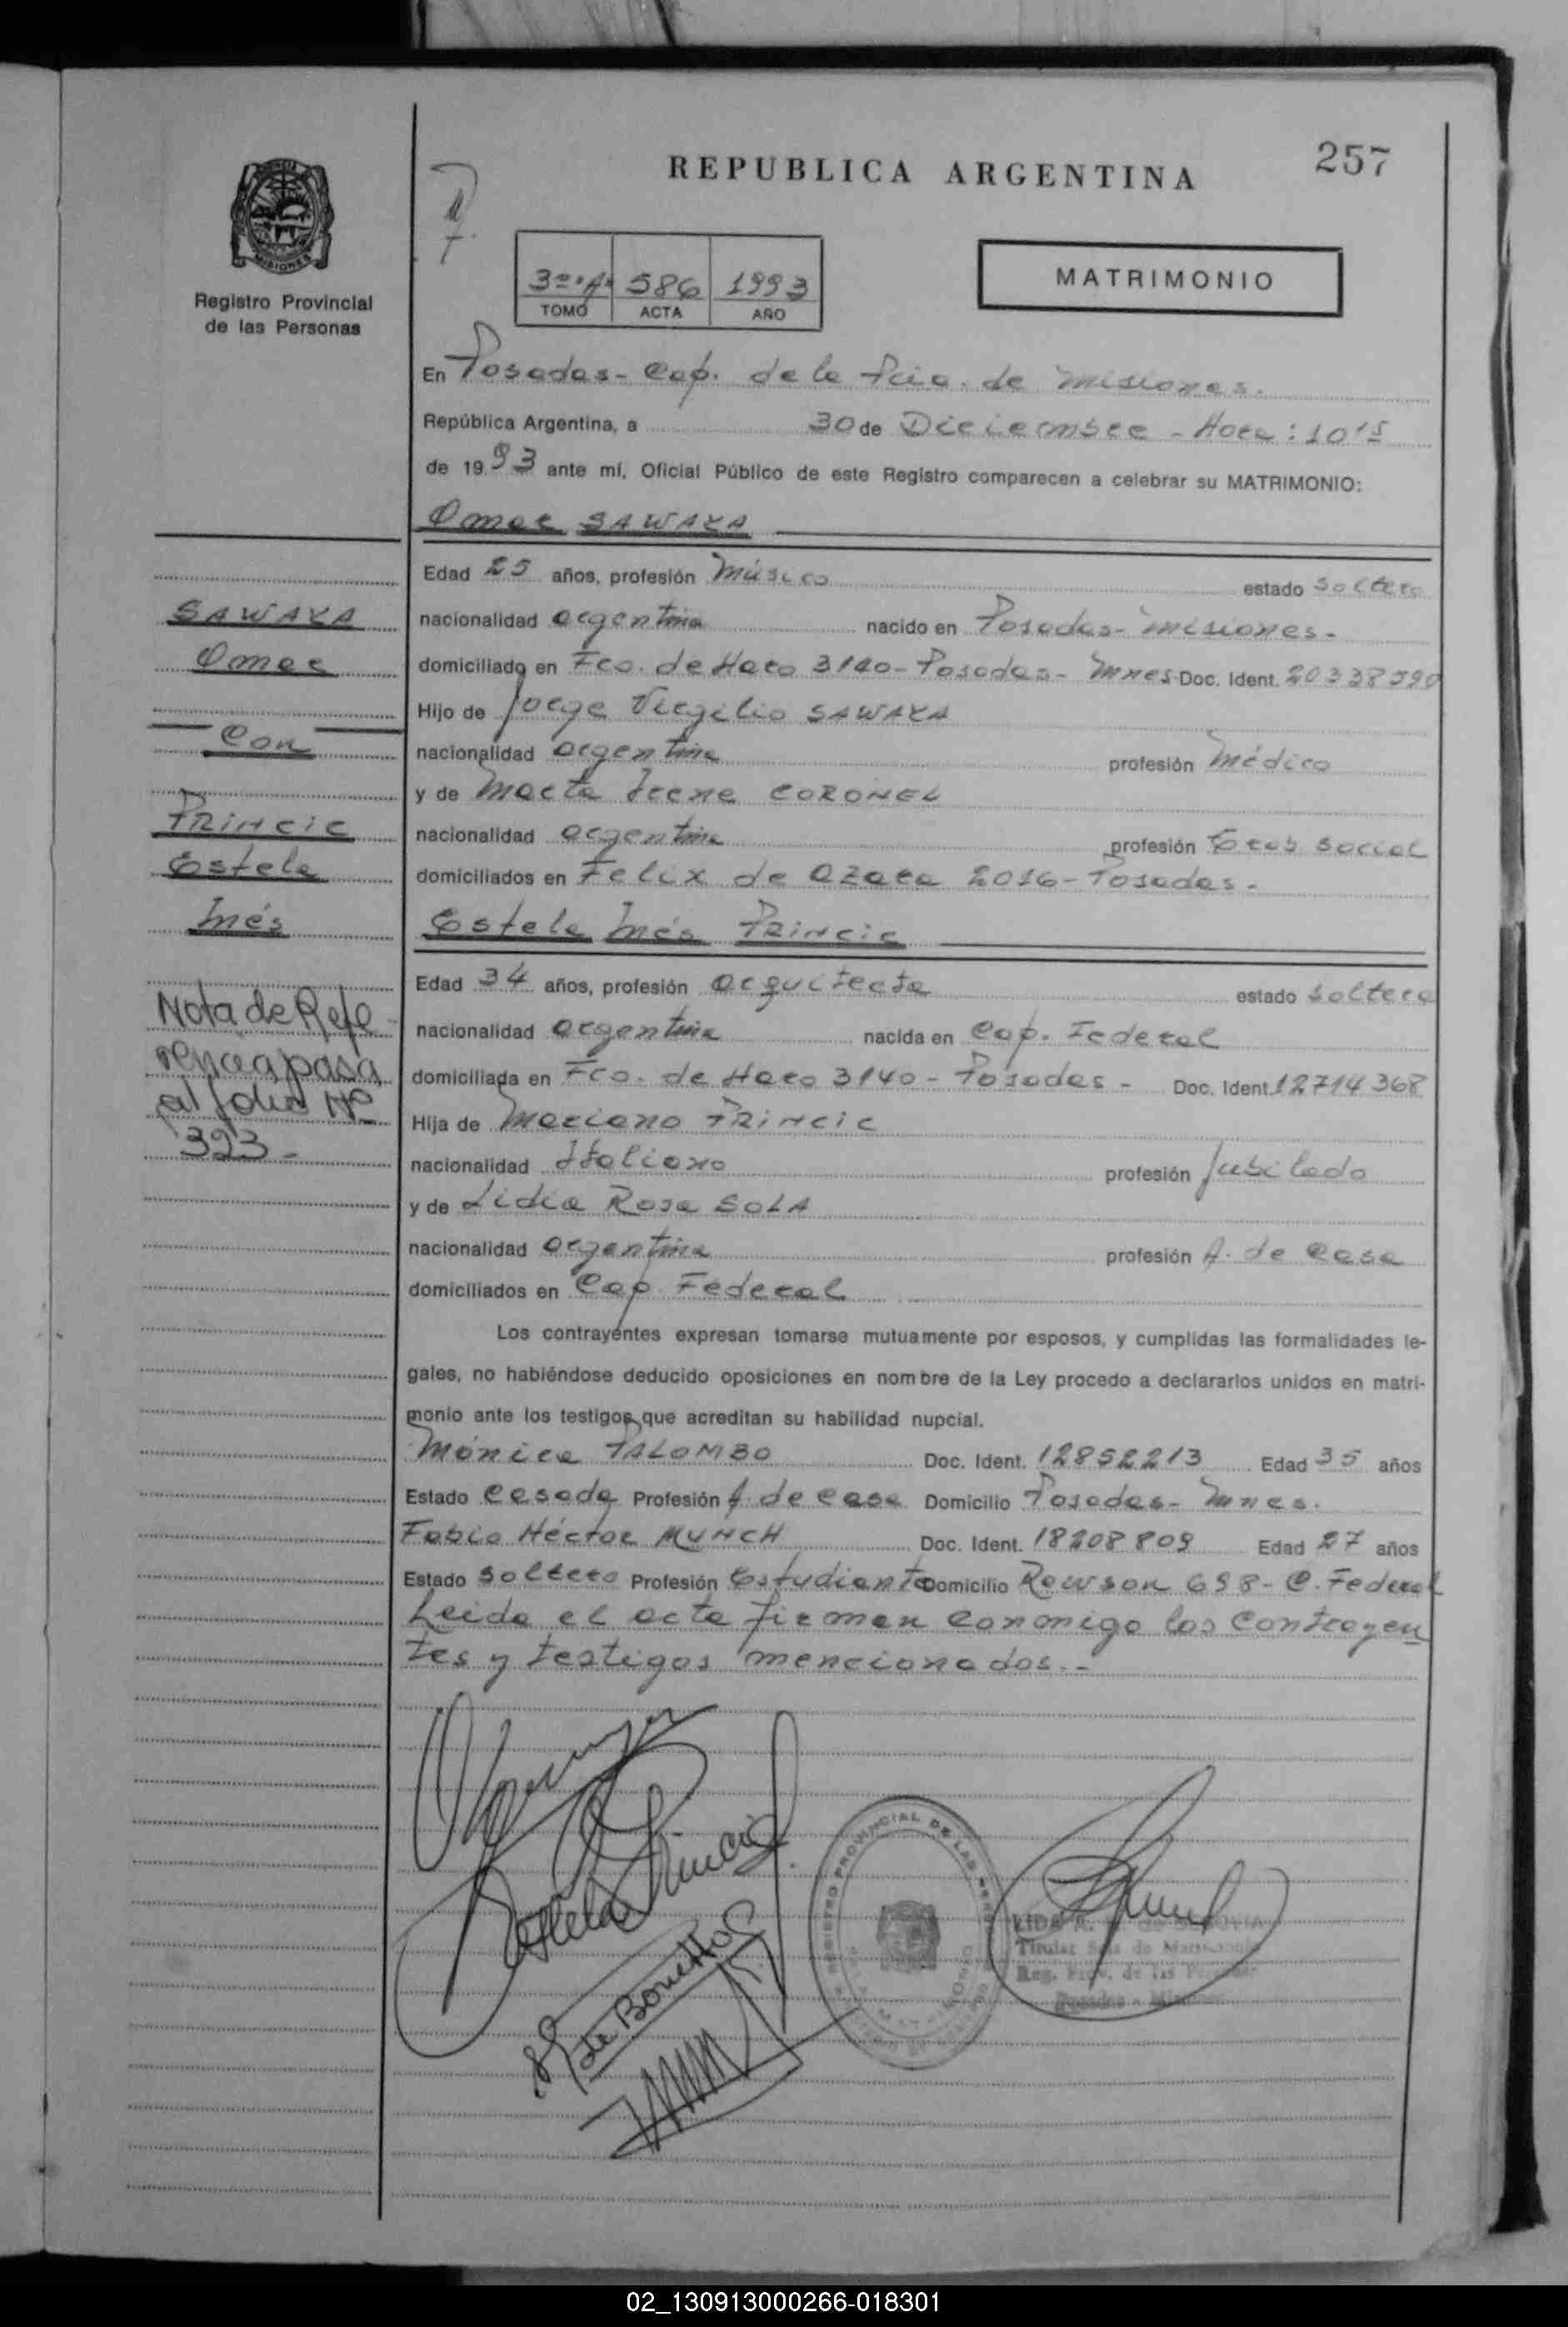 257
REPUBLICA ARGENTINA
MISIONES
Registro Provincial
de las Personas
3º "A" 586 1993
TOMO ACTA AÑO
MATRIMONIO
En Posadas - Cap. de la Pcia. de Misiones.
República Argentina, a 30 de Diciembre - Hora: 10'15
de 1993 ante mí, Oficial Público de este Registro comparecen a celebrar su MATRIMONIO:
Omar SAWAYA
Edad 25 años, profesión Músico estado soltero
nacionalidad argentina nacido en Posadas - Misiones -
domiciliado en Fco. de Haro 3140 - Posadas - Mnes Doc. Ident. 20338590
Hijo de Jorge Virgilio SAWAYA
nacionalidad argentina profesión Médico
y de Marta Irene CORONEL
nacionalidad argentina profesión Trab Social
domiciliados en Felix de Azara 2016 - Posadas -
Estela Inés PRINCIC
Edad 34 años, profesión arquitecta estado soltera
nacionalidad argentina nacida en Cap. Federal
domiciliada en Fco. de Haro 3140 - Posadas - Doc. Ident. 12714368
Hija de Mariano PRINCIC
nacionalidad Italiano profesión Jubilado
y de Lidia Rosa SOLA
nacionalidad argentina profesión A. de Casa
domiciliados en Cap. Federal
Los contrayentes expresan tomarse mutuamente por esposos, y cumplidas las formalidades le-
gales, no habiéndose deducido oposiciones en nombre de la Ley procedo a declararlos unidos en matri-
monio ante los testigos que acreditan su habilidad nupcial.
Mónica PALOMBO Doc. Ident. 12852213 Edad 35 años
Estado casada Profesión A. de casa Domicilio Posadas - Mnes.
Fabio Héctor MUNCH Doc. Ident. 18208809 Edad 27 años
Estado soltero Profesión Estudiante Domicilio Rawson 698 - C. Federal
Leida el acta firman conmigo los contrayen
tes y testigos mencionados.-
SAWAYA
Omar
Con
PRINCIC
Estela
Inés
Nota de Refe-
rencia pasa
al folio Nº
393-
Estela Princic
de Bonetto
REGISTRO PROVINCIAL DE LAS
LIDA A.
Titular de
Reg. Prov. de las
Posadas - Misiones
02_130913000266-018301